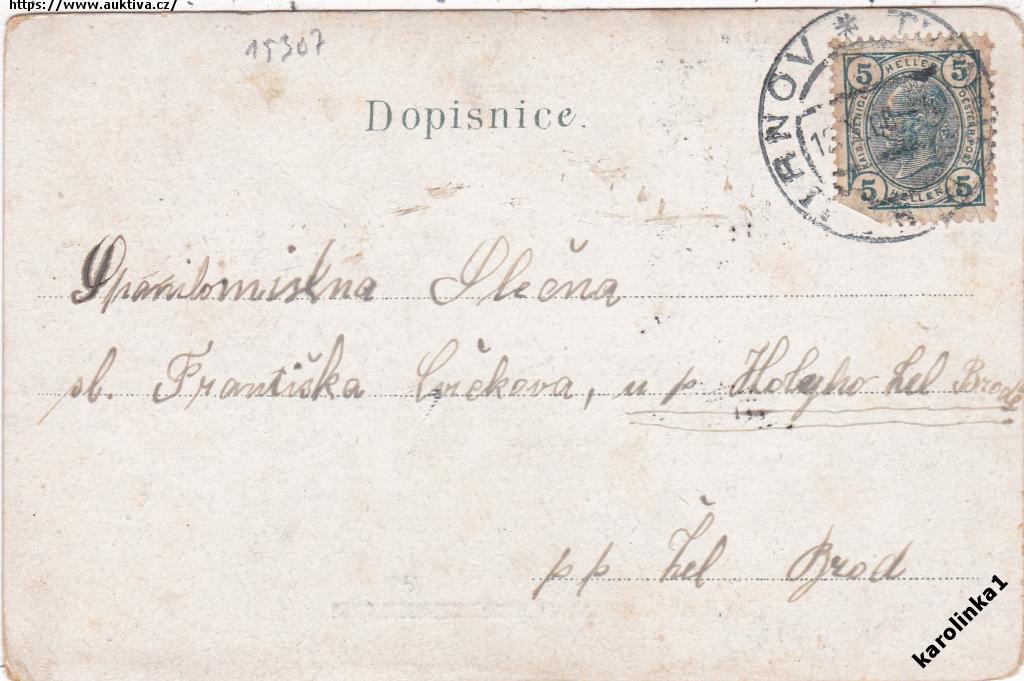 https://www.auktiva.cz/
15307
Dopisnice.
TURNOV * TU
5 HELLER 5
KAIS. KOENIGL. OESTERR. POST
5 HELLER 5
Slečna
sl. Františka Cvčkova, u p Holyho žel Brodě
pp žel Brod
karolinka1